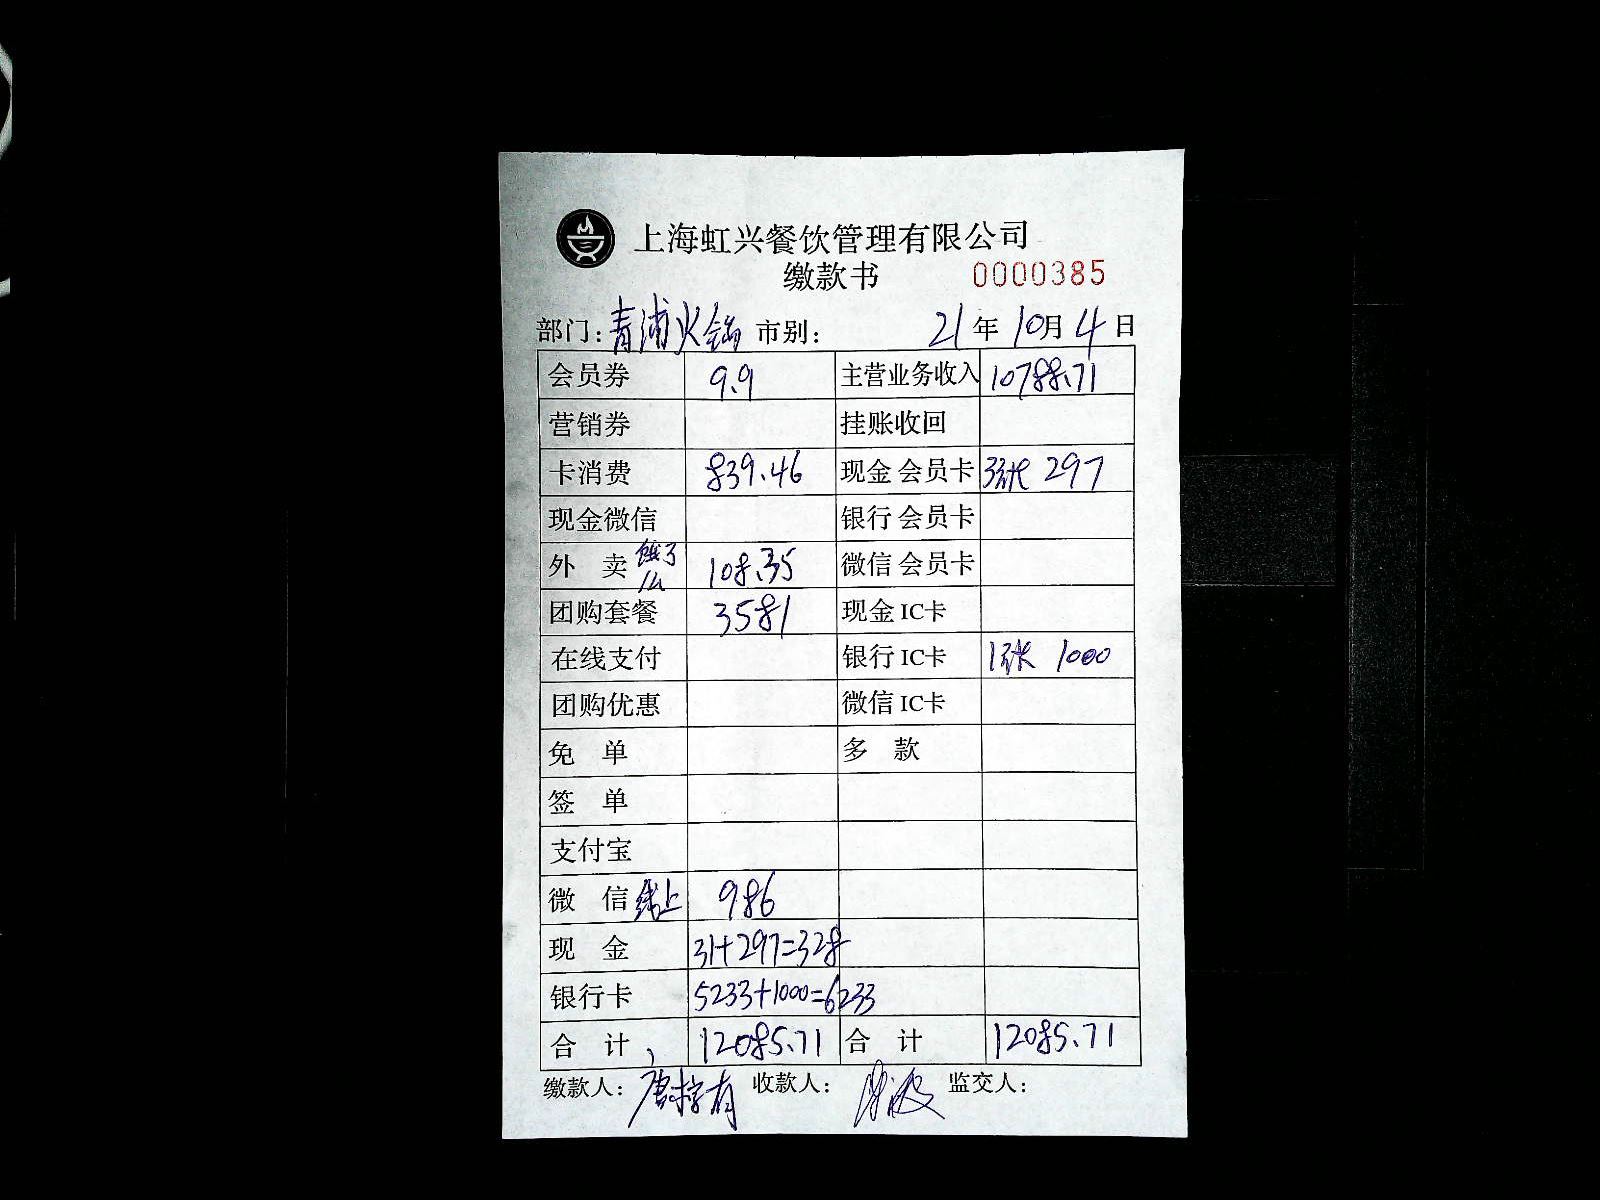 上海虹兴餐饮管理有限公司
缴款书 0000385
部门：青浦火锅 市别： 21年10月4日
会员券 9.9 主营业务收入 10788.71
营销券 挂账收回
卡消费 839.46 现金 会员卡 3张 297
现金微信 银行 会员卡
外 卖 饿了么 108.35 微信 会员卡
团购套餐 3581 现金 IC卡
在线支付 银行 IC卡 1张 1000
团购优惠 微信 IC卡
免 单 多 款
签 单
支付宝
微 信 线上 986
现 金 31+297=328
银行卡 5233+1000=6233
合 计 12085.71 合 计 12085.71
缴款人： 收款人： 监交人：